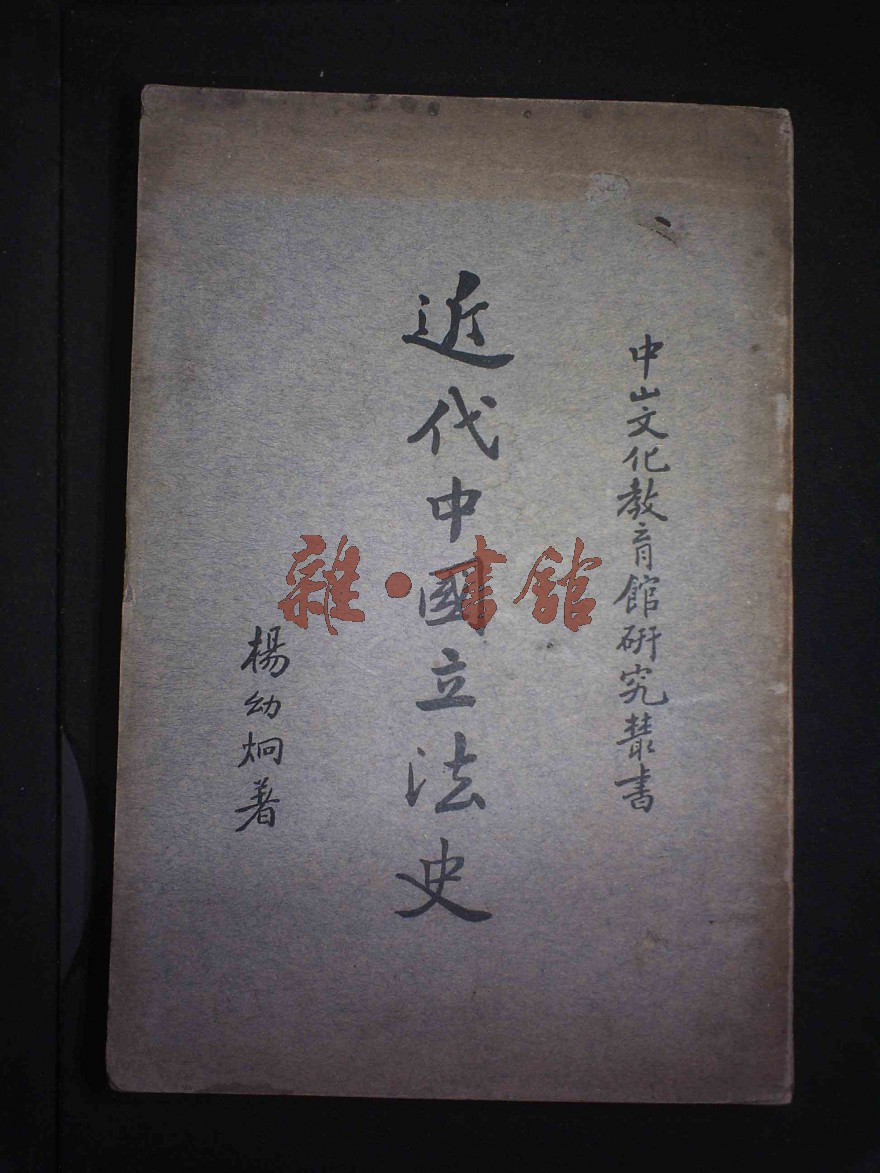 中山文化教育館研究叢書
近代中國立法史
楊幼炯著
雜·書館